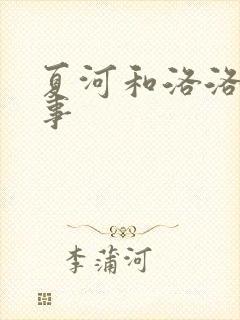 夏河和洛洛
事
李蒲河